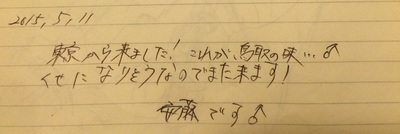 2015, 5, 11
東京から来ました! これが、鳥取の味…♂
くせになりそうなのでまた来ます!
安藤です♂